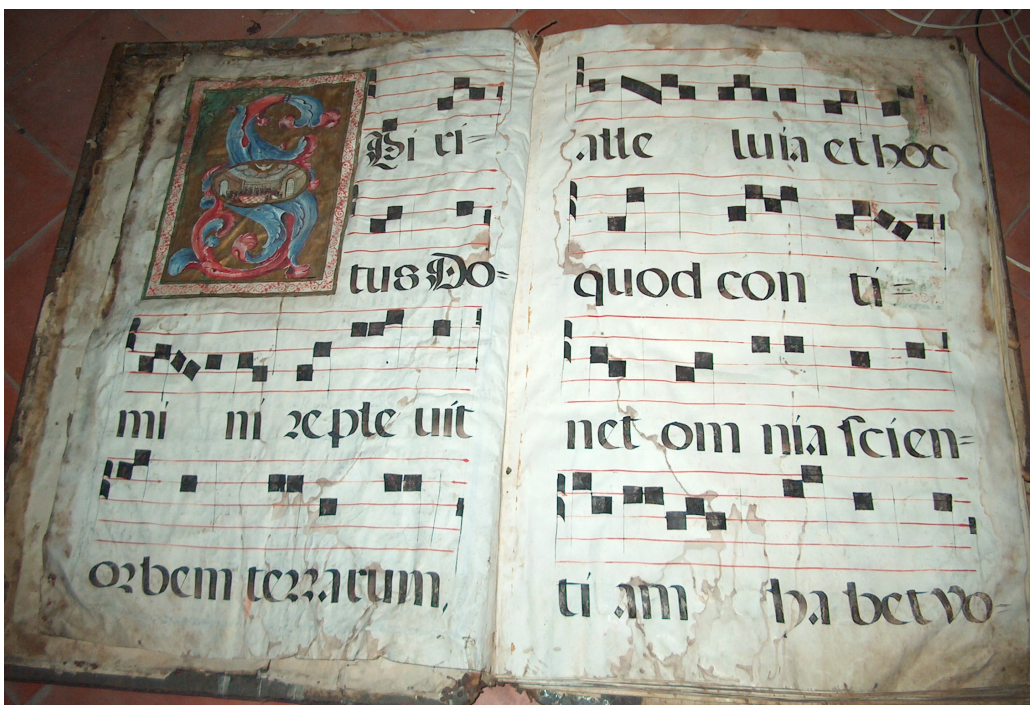 SPi ri=
tus Do=
mi ni reple uit
orbem terrarum,
alle luia et hoc
quod con ti=
net om nia scien=
ti am ha bet vo=